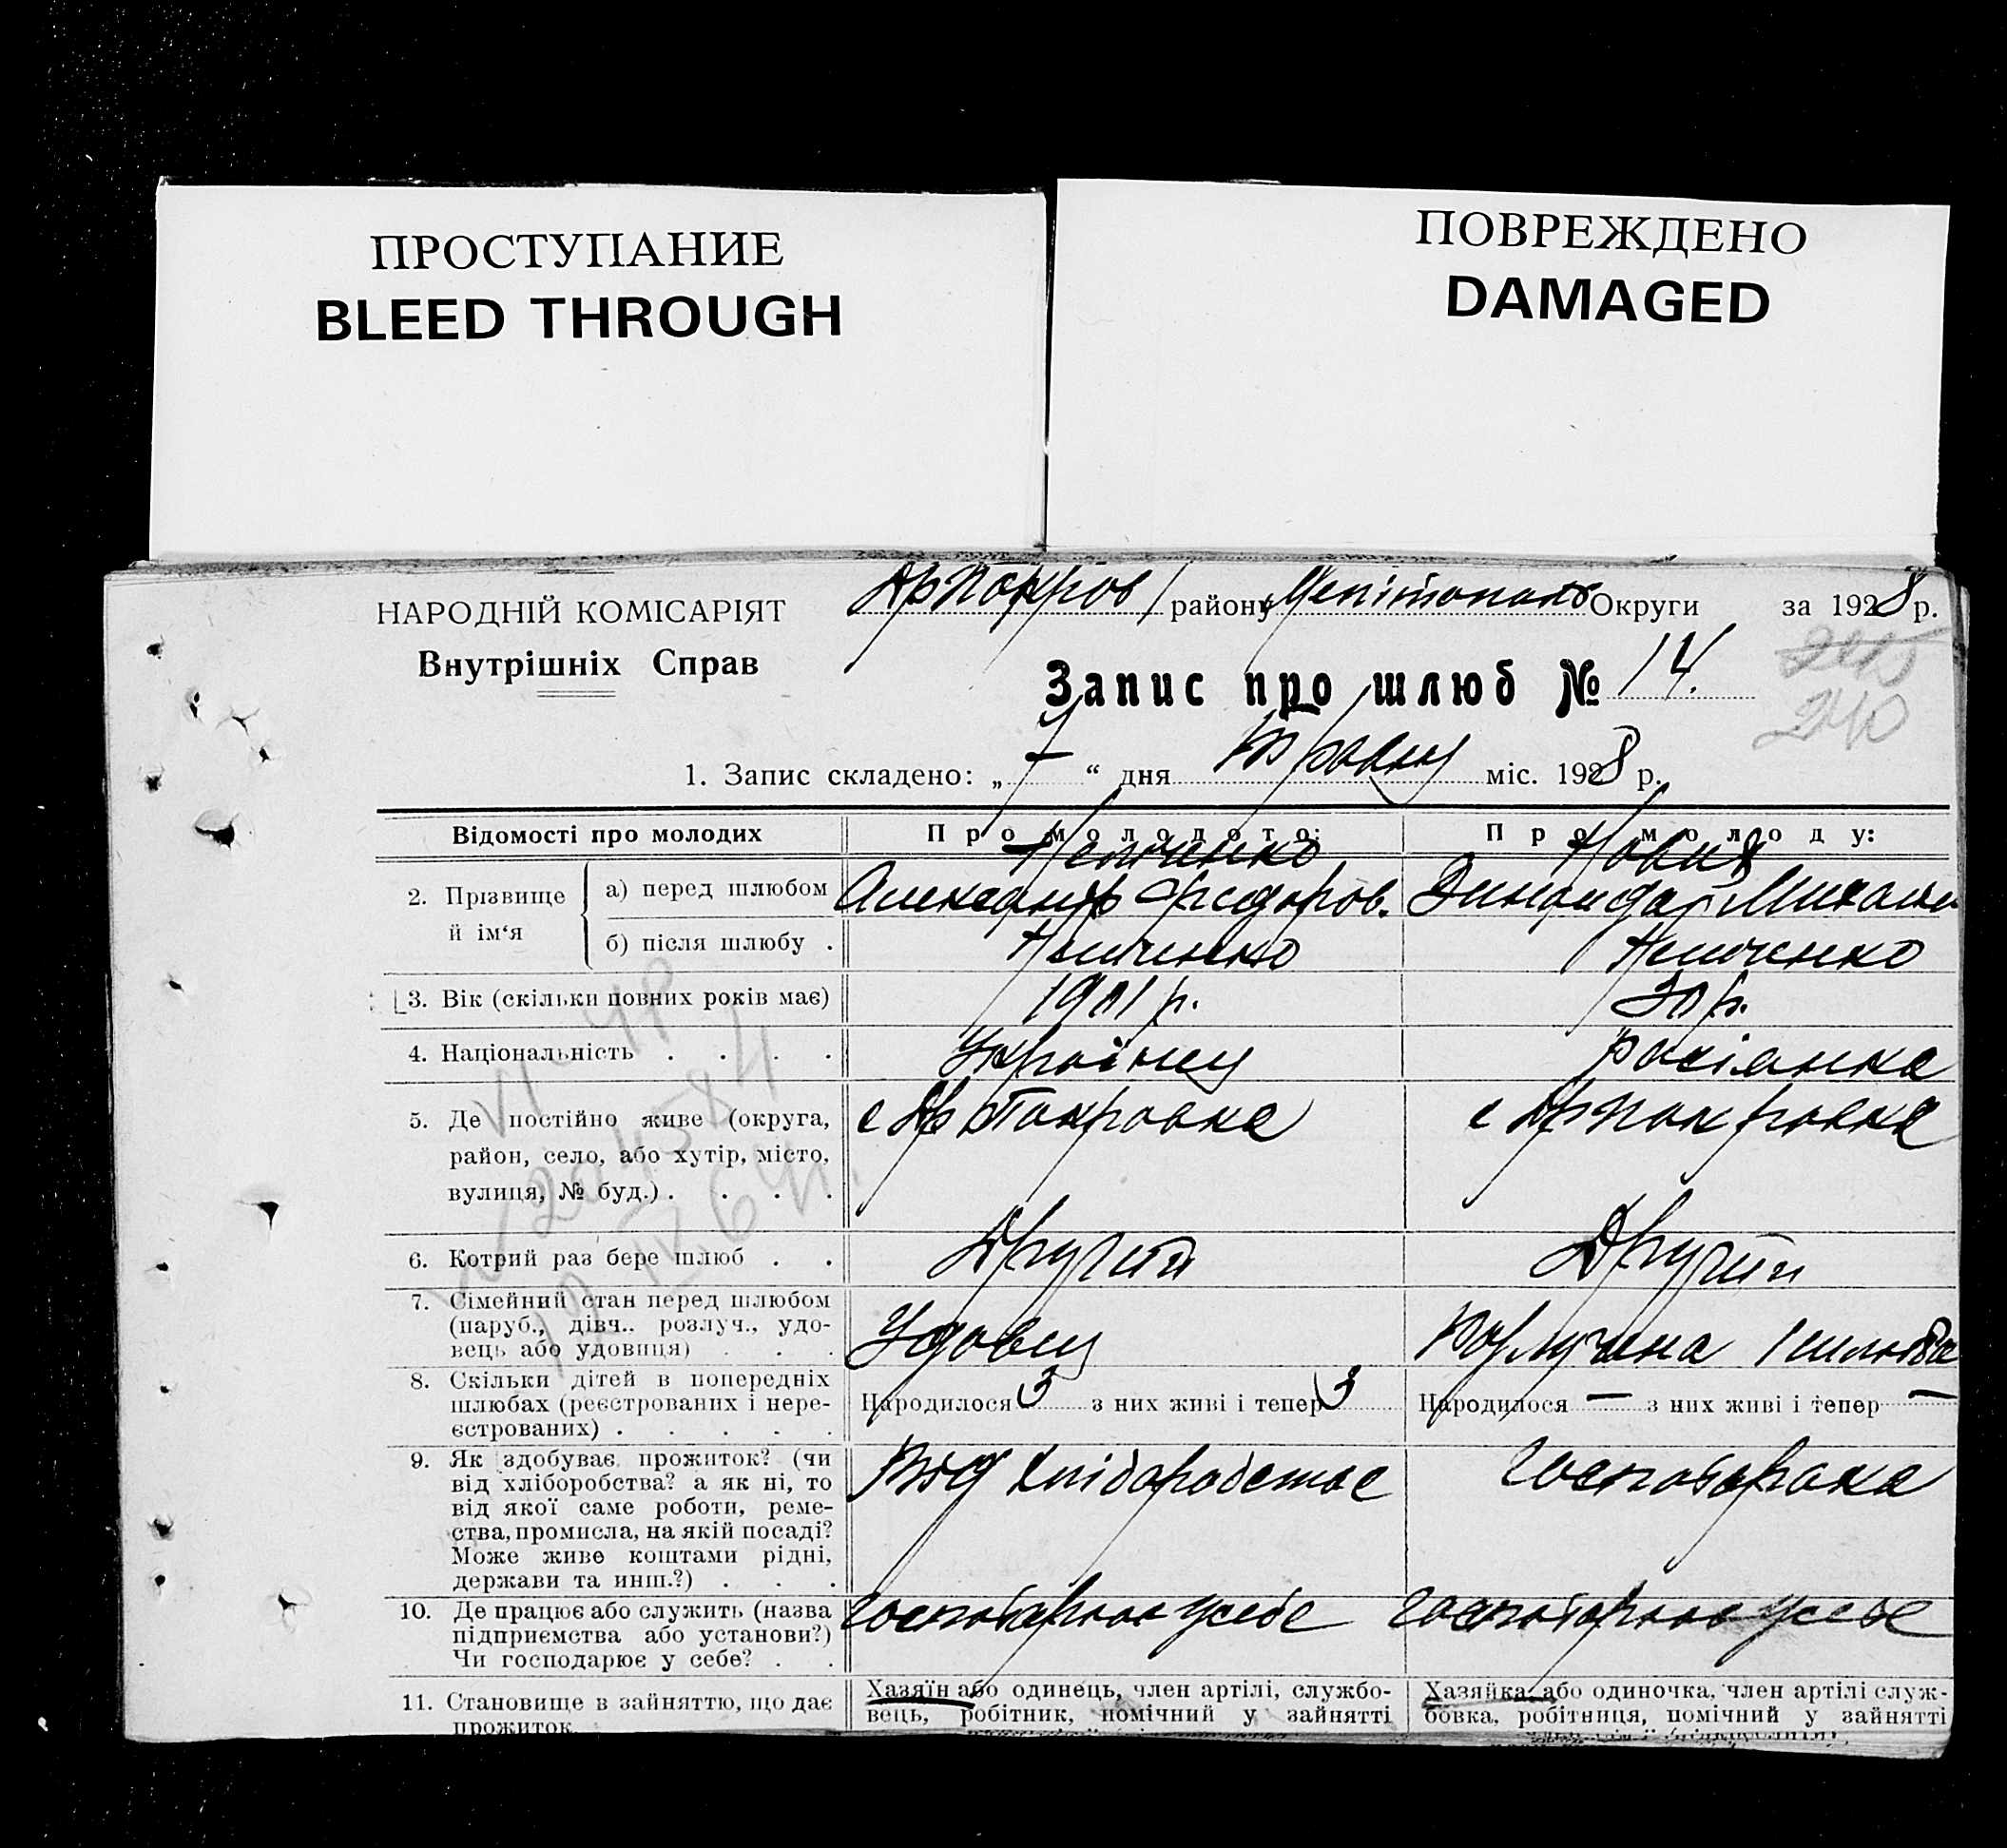 ПРОСТУПАНИЕ
BLEED THROUGH
ПОВРЕЖДЕНО
DAMAGED
НАРОДНІЙ КОМІСАРІЯТ
Внутрішніх Справ
району Округи за 1928 р.
Запис про шлюб № 14.
240
1. Запис складено: „ 7 “ дня міс. 1928 р.
Відомості про молодих
Про молодого:
Про молоду:
2. Прізвище й ім‘я
а) перед шлюбом
Федоров.
б) після шлюбу .
3. Вік (скільки повних років має)
1901 р.
30 р.
4. Національність . . . .
Українец
росіянка
5. Де постійно живе (округа,
район, село, або хутір, місто,
вулиця, № буд.) . . . .
6. Котрий раз бере шлюб . .
Другий
Другий
7. Сімейний стан перед шлюбом
(паруб., дівч.. розлуч., удо-
вець або удовиця) . . .
Удовец
8. Скільки дітей в попередніх
шлюбах (реєстрованих і нере-
єстрованих) . . . . .
Народилося 3 з них живі і тепер 3
Народилося — з них живі і тепер —
9. Як здобуває прожиток? (чи
від хліборобства? а як ні, то
від якої саме роботи, реме-
ства, промисла, на якій посаді?
Може живе коштами рідні,
держави та инш.?) . . .
Від хліборобства
10. Де працює або служить (назва
підприємства або установи?)
Чи господарює у себе? . .
11. Становище в зайняттю, що дає
прожиток
Хазяїн або одинець, член артілі, службо-
вець, робітник, помічний у зайнятті
Хазяйка або одиночка, член артілі служ-
бовка, робітниця, помічний у зайнятті